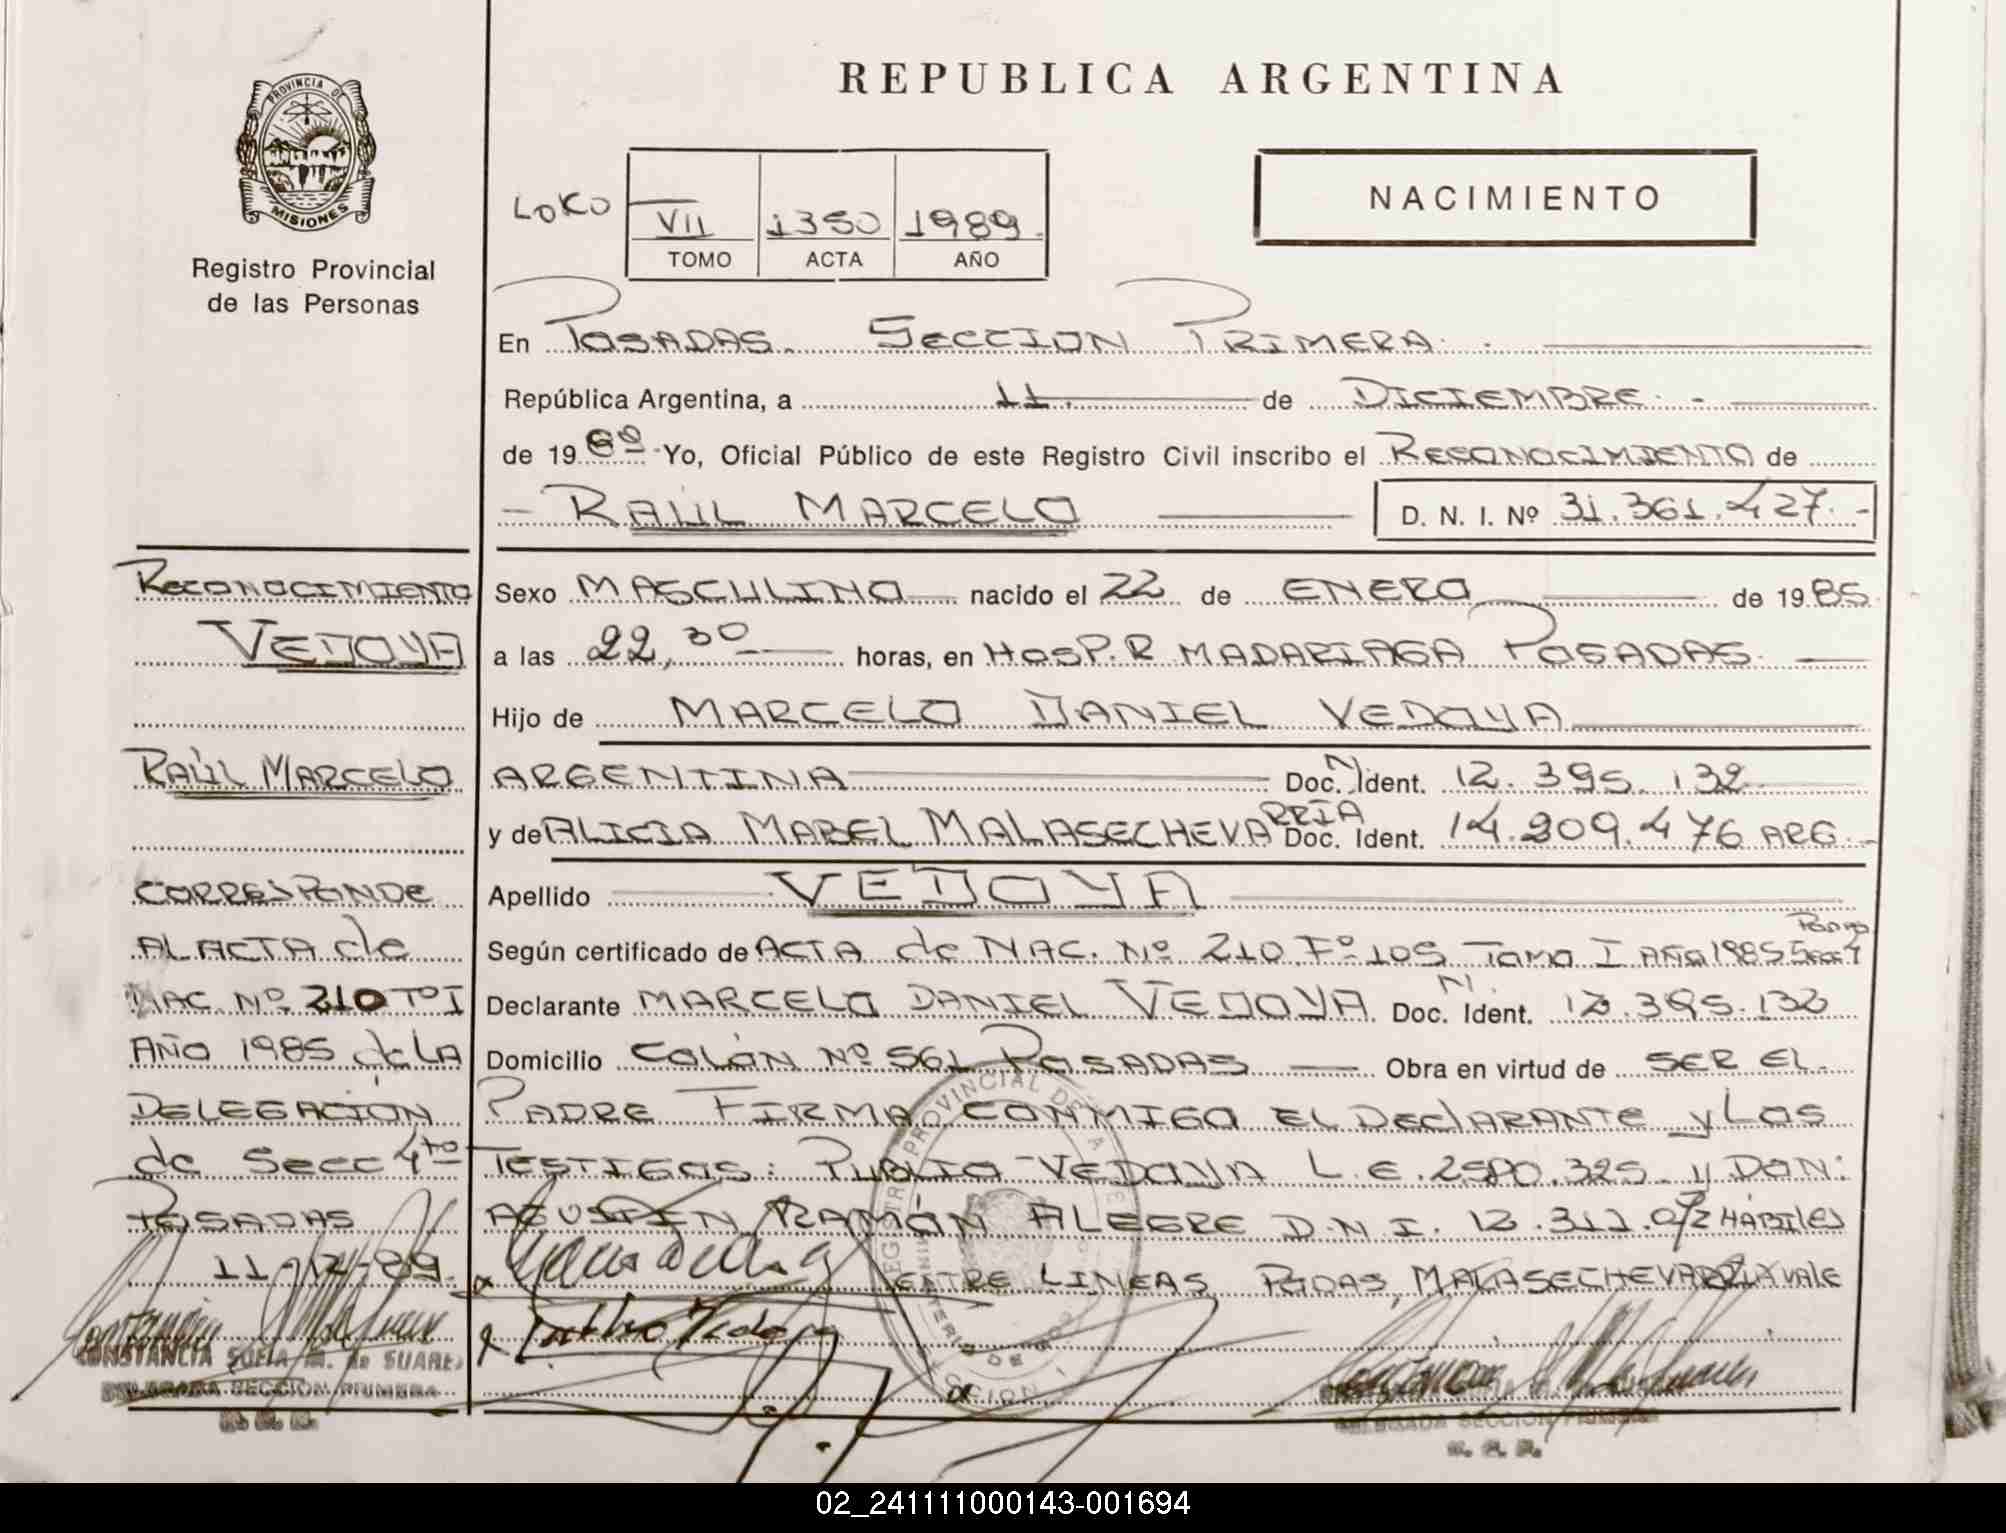 REPUBLICA ARGENTINA
PROVINCIA DE
MISIONES
Registro Provincial
de las Personas
LOKO
VII 1350 1989
TOMO ACTA AÑO
NACIMIENTO
En POSADAS. SECCION PRIMERA.
República Argentina, a 11. de DICIEMBRE.
de 1989 Yo, Oficial Público de este Registro Civil inscribo el RECONOCIMIENTO de
RAÚL MARCELO D. N. I. Nº 31.361.427.-
Sexo MASCULINO nacido el 22 de ENERO de 1985
a las 22,30 horas, en HOSP. R MADARIAGA POSADAS.
Hijo de MARCELO DANIEL VEDOYA
ARGENTINA Doc. N. Ident. 12.395.132
y de ALICIA MABEL MALASECHEVARRIA Doc. Ident. 14.209.476 ARG.-
Apellido VEDOYA
Según certificado de ACTA de NAC. Nº 210 Fº 105 TOMO I AÑO 1985 Secc 4
Declarante MARCELO DANIEL VEDOYA Doc. N. Ident. 12.395.132
Domicilio COLÓN Nº 561 POSADAS Obra en virtud de SER EL
PADRE FIRMA CONMIGO EL DECLARANTE y LOS
TESTIGOS: PUBLIO VEDOYA L.E. y DON:
AGUSTIN RAMÓN ALEGRE D.N.I. 12.311.072 HÁBILES
ENTRE LINEAS, PODAS, MALASECHEVARRIA VALE
RECONOCIMIENTO
VEDOYA
RAÚL MARCELO
CORRESPONDE
AL ACTA de
NAC. Nº 210 Tº I
AÑO 1985 de LA
DELEGACIÓN
de SECC 4to
POSADAS
11-12-89.
CONSTANCIA SOFIA M. de SUAREZ
DELEGADA SECCION PRIMERA
R. P. P.
DELEGADA SECCION PRIMERA
R. P. P.
02_241111000143-001694